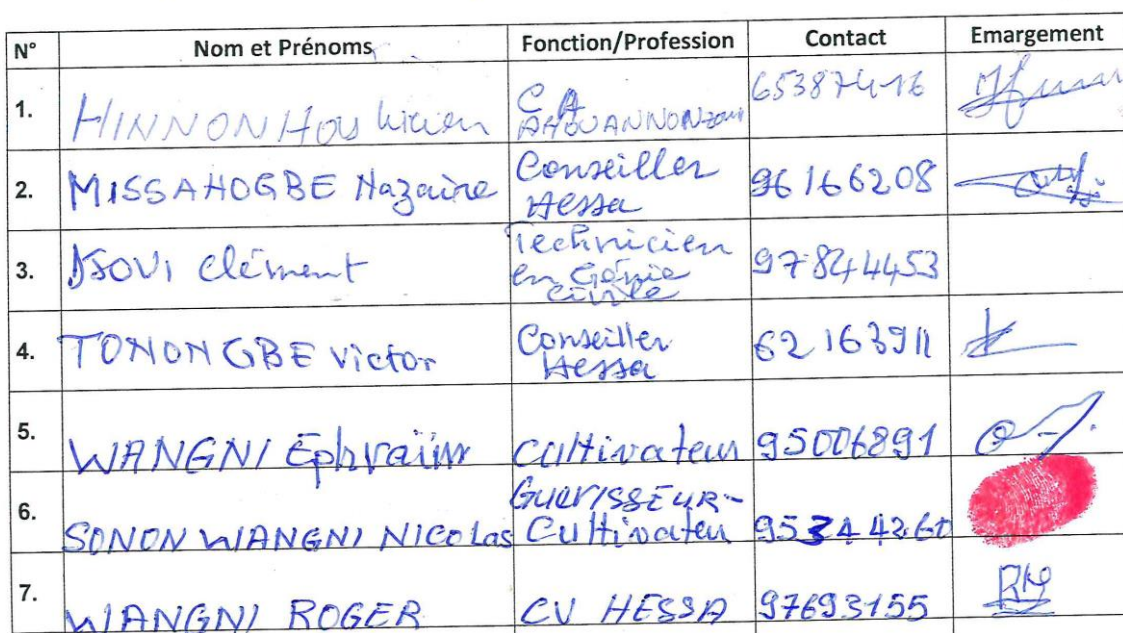 N° Nom et Prénoms Fonction/Profession Contact Emargement
1. HINNONHOU Lucien C A AHOUANNONZOUN 65387416
2. MISSAHOGBE Nazaire Conseiller Hessa 96166208
3. DSOVI Clément Technicien en Génie civile 97844453
4. TONONGBE Victor Conseiller Hessa 62163911
5. WANGNI Ephraïm Cultivateur 95006891
6. SONON WANGNI NICOLAS GUERISSEUR-Cultivateu 95344260
7. WANGNI ROGER CV HESSA 97693155